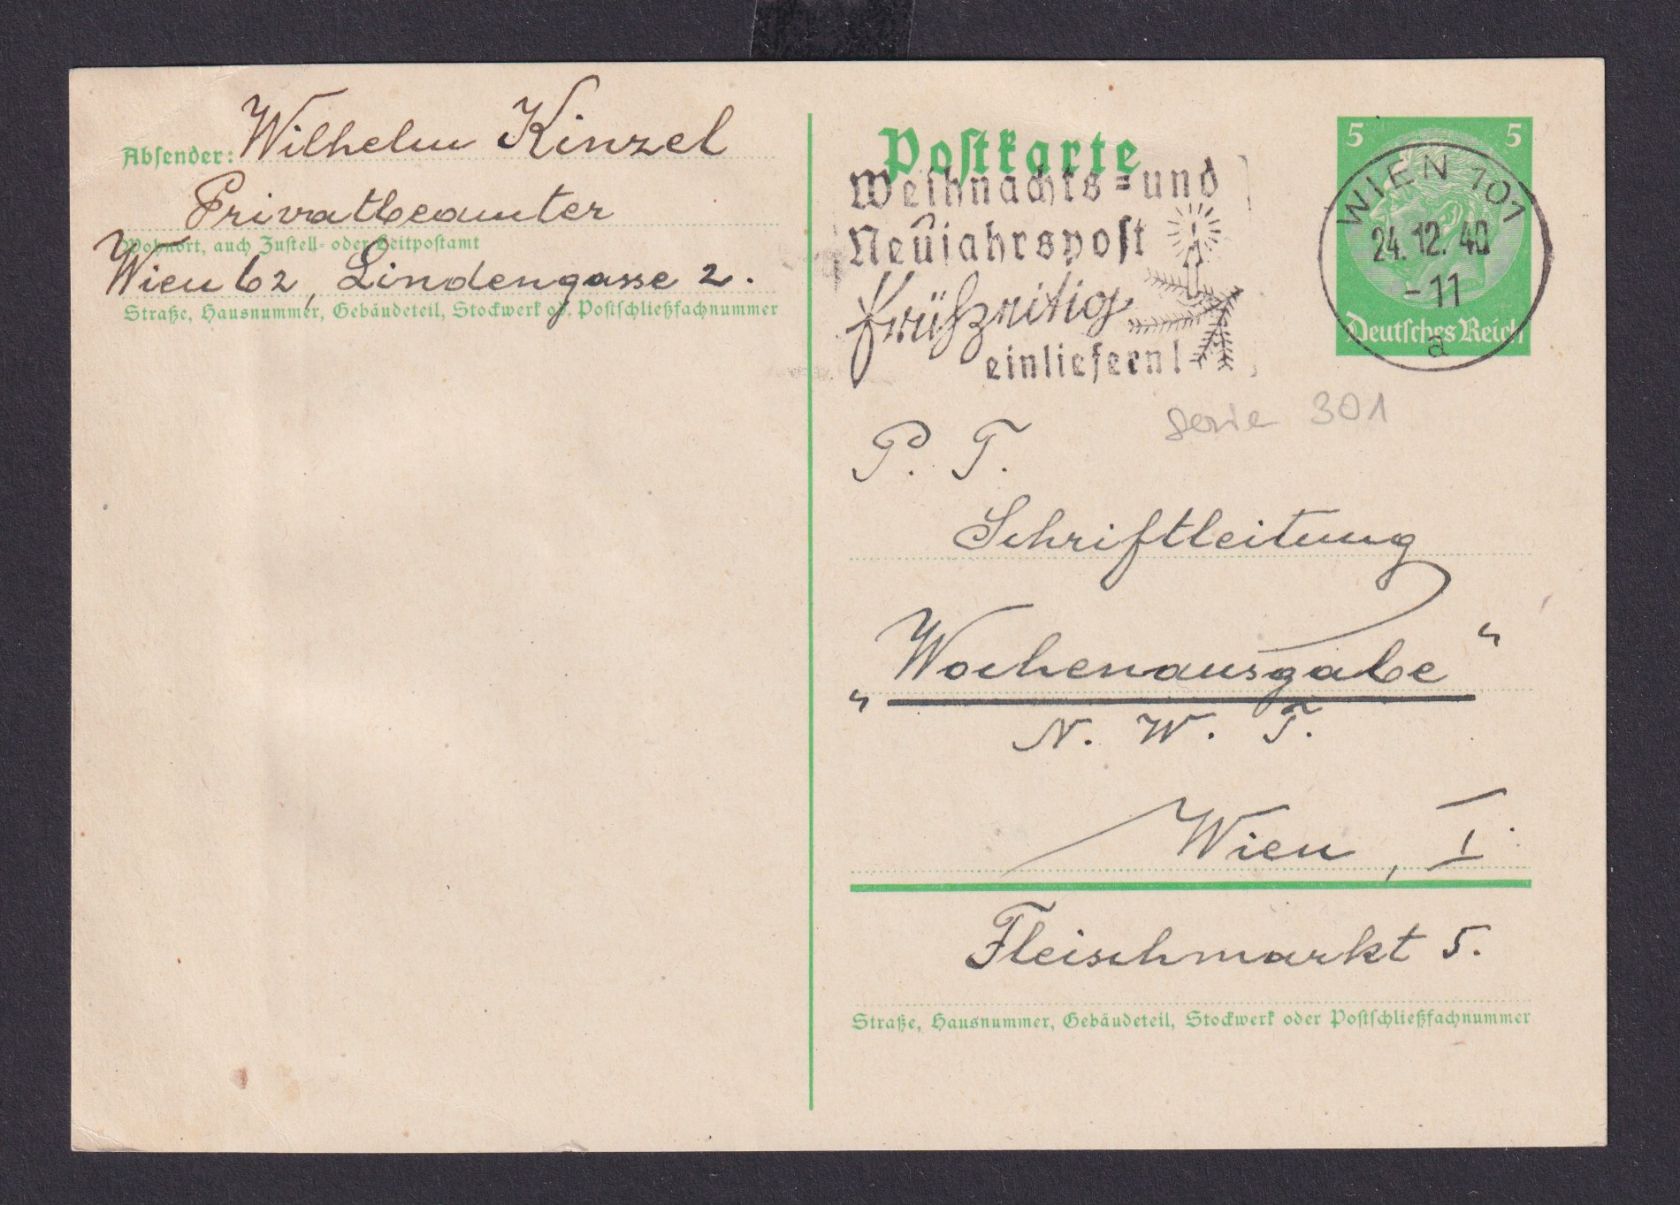 Absender: Wilhelm Kinzel
Privatbeamter
Wohnort, auch Zustell- oder Leitpostamt
Wien 62, Lindengasse 2.
Straße, Hausnummer, Gebäudeteil, Stockwerk od. Postschließfachnummer
Postkarte
Weihnachts- und
Neujahrspost
frühzeitig
einliefern!
5 5
WIEN 101
24.12.40
-11
a
Deutsches Reich
Serie 301
P. T.
Schriftleitung
„Wochenausgabe"
N. W. T.
Wien, I.
Fleischmarkt 5.
Straße, Hausnummer, Gebäudeteil, Stockwerk oder Postschließfachnummer